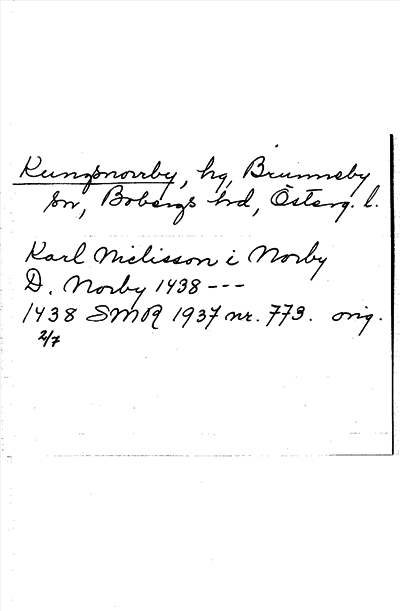 Kungsnorrby, hg, Brunneby
sn, Bobergs hd, Österg. l.
Karl Nielisson i Norby
D. Norby 1438 ---
1438 SMR 1937 nr. 773. orig.
2/7